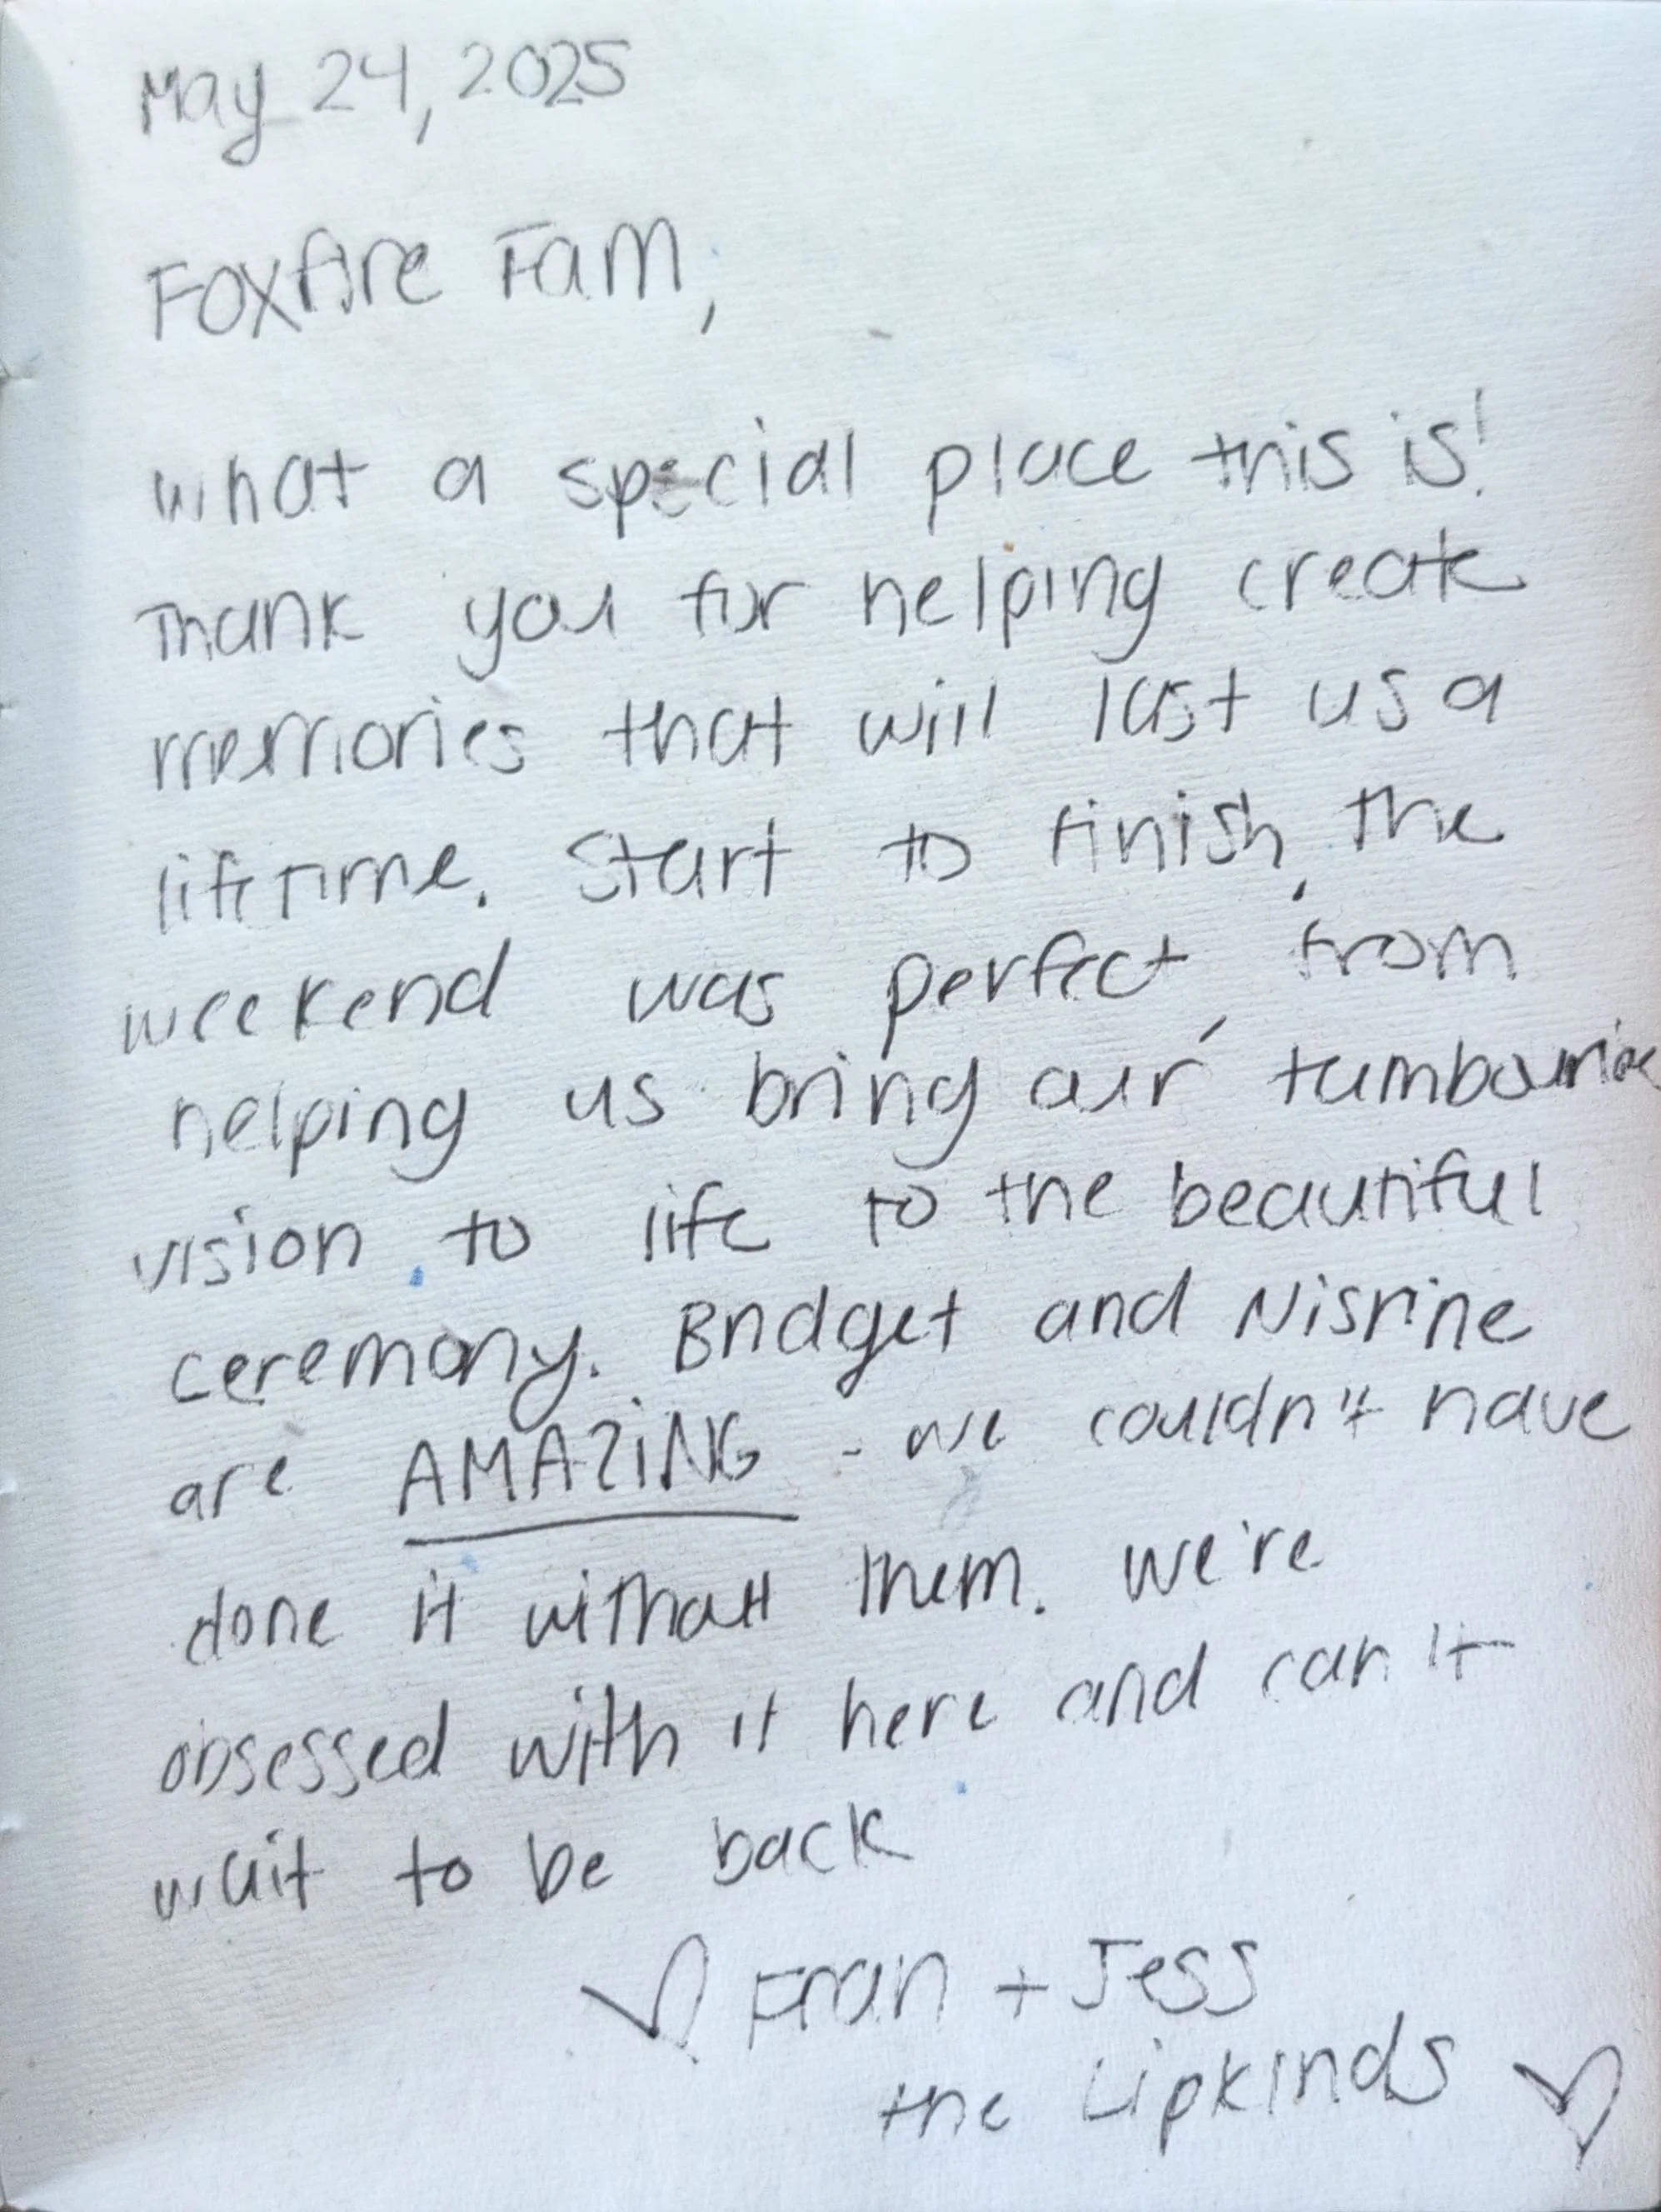 May 24, 2025
Foxfire Fam,
What a special place this is!
Thank you for helping create
memories that will last us a
lifetime. Start to finish, the
weekend was perfect, from
helping us bring our tambourine
vision to life to the beautiful
ceremony. Bridget and Nisrine
are AMAZING - we couldn't have
done it without them. We're
obsessed with it here and can't
wait to be back
♡ Fran + Jess
the Lipkinds ♡